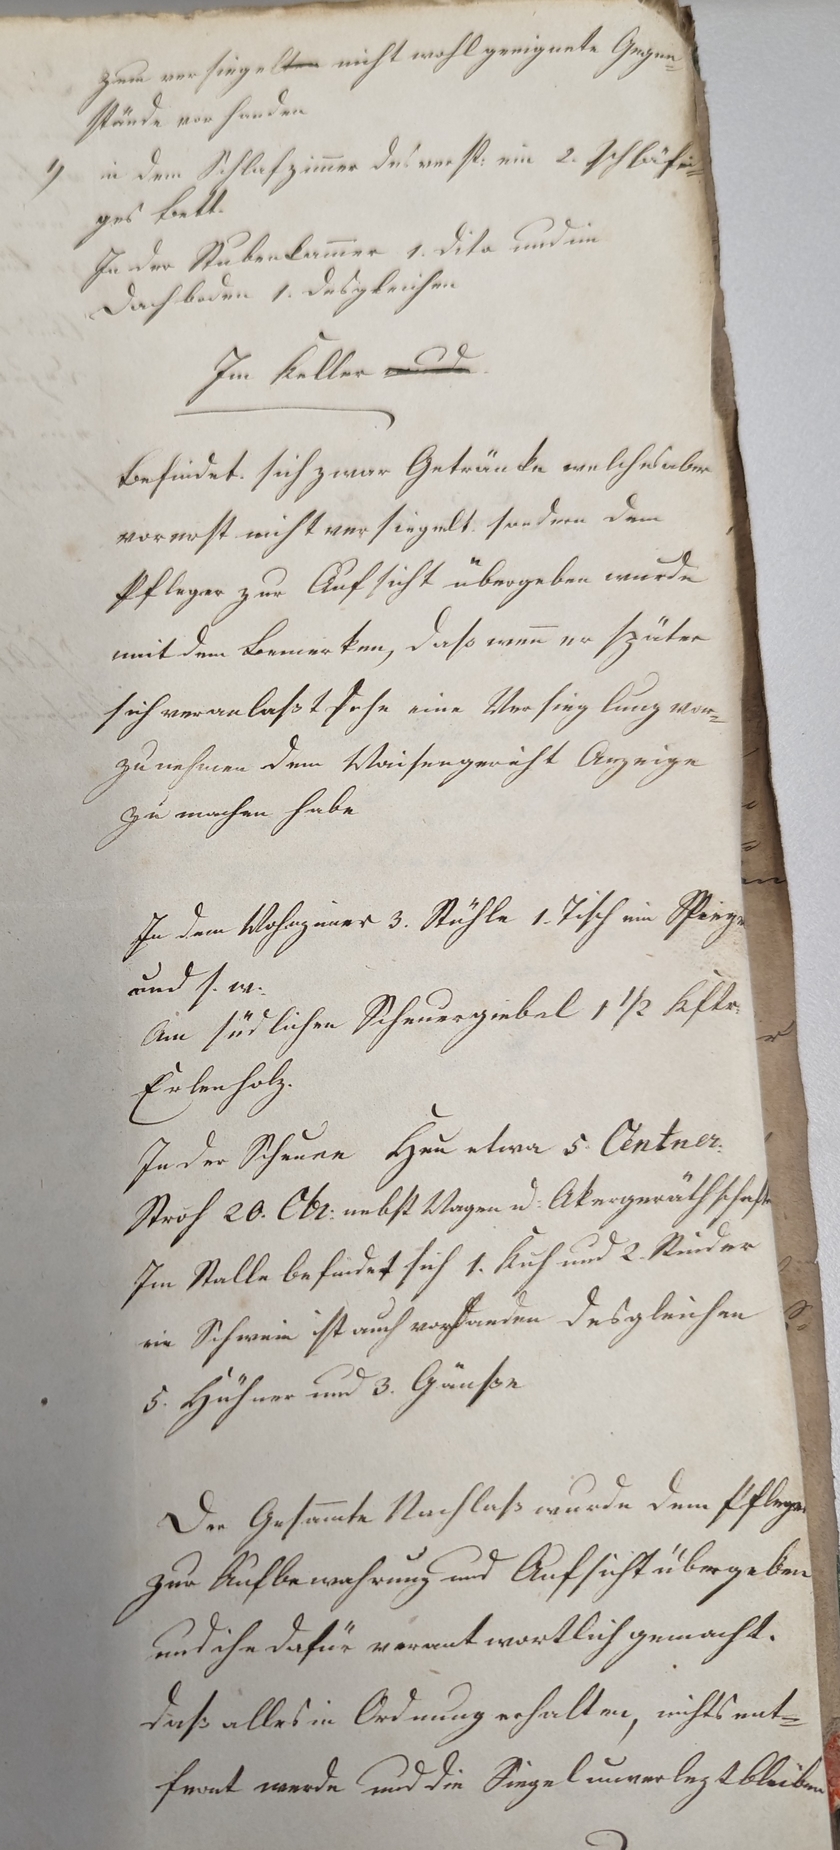 zum versiegelten nicht wohl geeignete Gegen=
stände vorhanden
1) in dem Schlafzimmer des verst: ein 2. schläfi=
ges Bett.
In der Stubenkam̄er 1. dito und im
Dachboden 1. desgleichen
Im Keller und
befindet. sich zwar Getränke welches aber
vorerst nicht versiegelt. sondern dem
Pfleger zur Aufsicht übergeben wurde
mit dem Bemerken, daß wen̄ er später
sich veranlaßt sehe eine Versieglung vor=
zunehmen dem Waisengericht Anzeige
zu machen habe
In dem Wohnzimer 3. Stühle 1. Tisch ein Spiege
und s. w.
Am südlichen Scheuergiebel 1 1/2 Kftr.
Erlenholz.
In der Scheune Heu etwa 5. Centner.
Stroh 20. Ctr: nebst Wagen u: Akergeräthschaft
Im Stalle befindet sich 1. Kuh und 2. Rinder
ein Schwein ist auch vorhanden desgleichen
5. Hühner und 3. Gänße
Der Gesam̄te Nachlaß wurde dem Pfleger
zur Aufbewahrung und Aufsicht übergeben
und ihn dafür verantwortlich gemacht.
daß alles in Ordnung erhalten, nichts ent=
fernt werde und die Siegel unverlezt bleiben